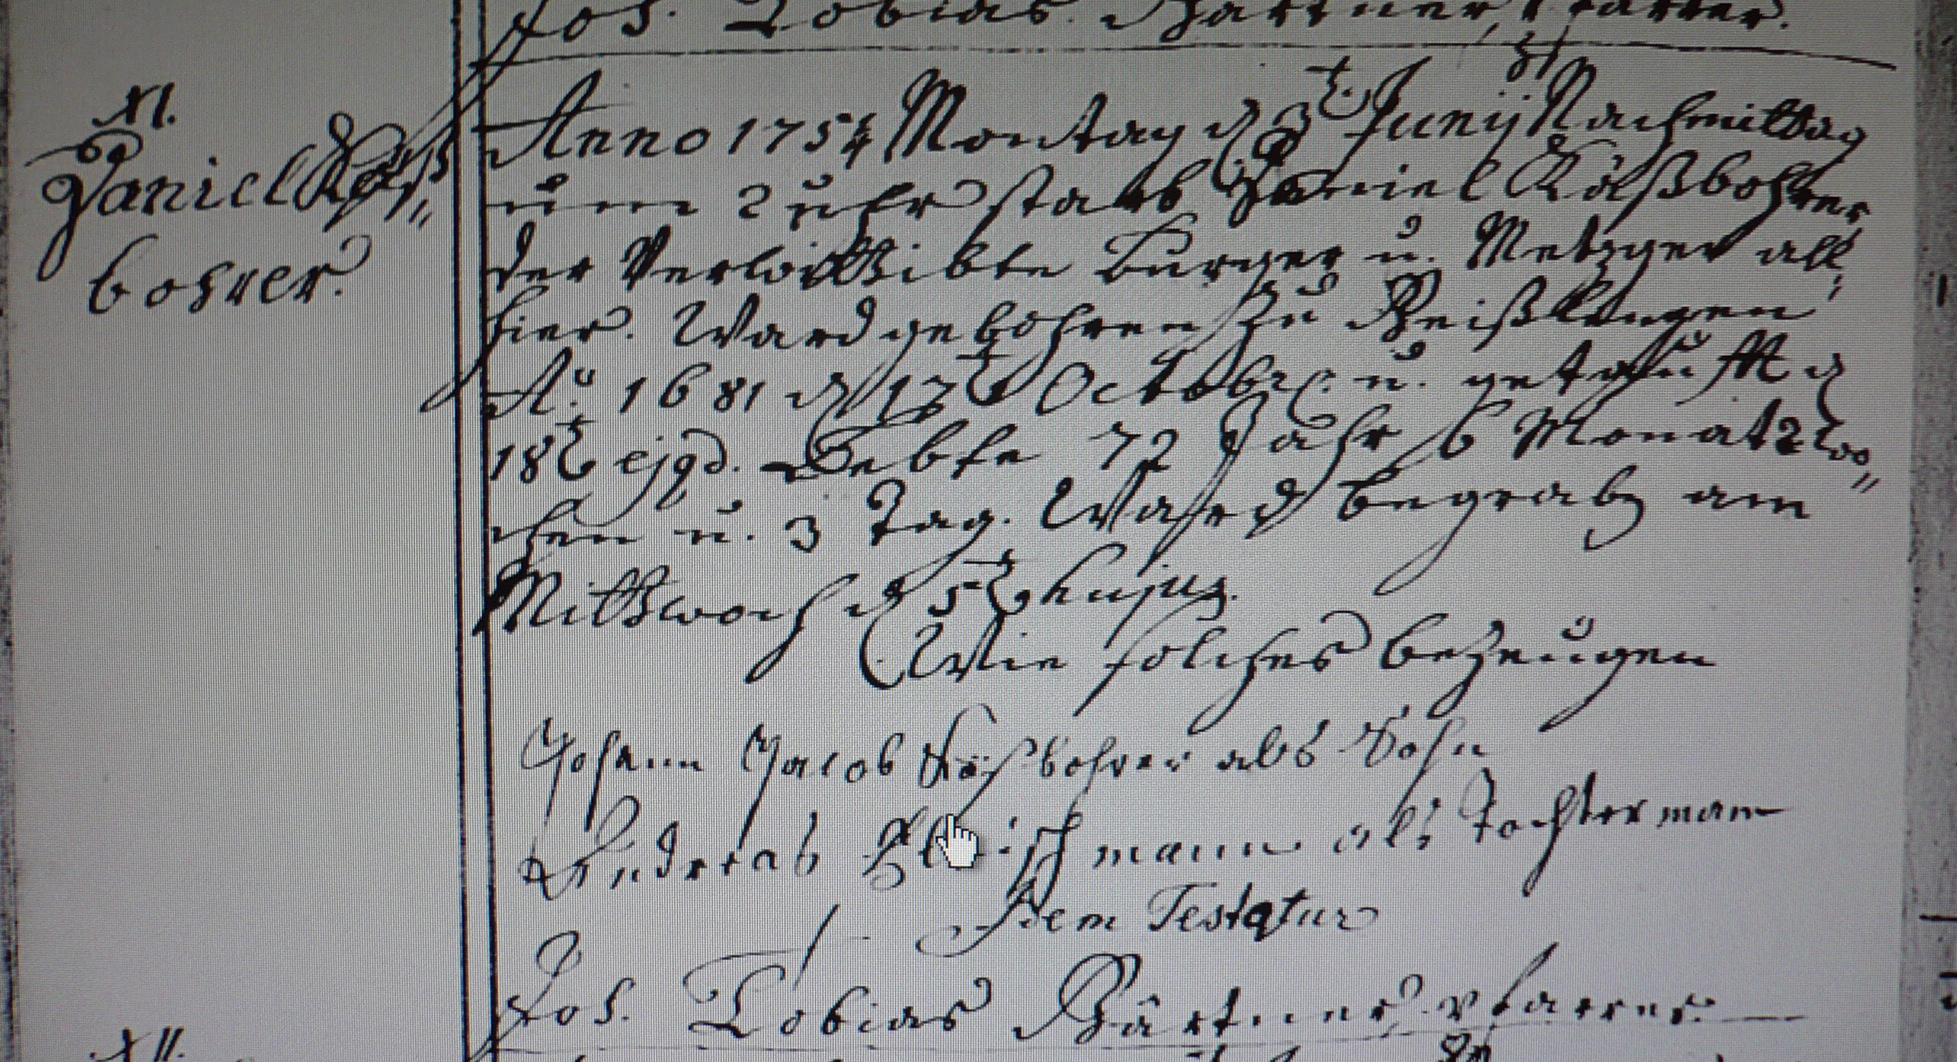 Joh. Tobias Gärttner, Pfarrer.
XI.
Daniel Käß„
bohrer.
Anno 1754 Montag d 3t Junij Nachmittag
um 2 uhr starb Daniel Käßbohrer
der Verwittibte burger u. Metzger all„
hier. Ward gebohren zu
Ao 1681 d 17t Octobr. u. getaufft d
18t ejgd. Lebte 72 Jahr 6 Monat 2 Wo„
chen u. 3 Tag. Ward begrabn am
Mittwoch d 5t hujus.
Wie solches bezeugen
Johann Jacob Käßbohrer als Sohn
Andreas Fleischmann als Tochterman
Idem Testatur
Joh. Tobias Gärttner, Pfarrer.
XII.